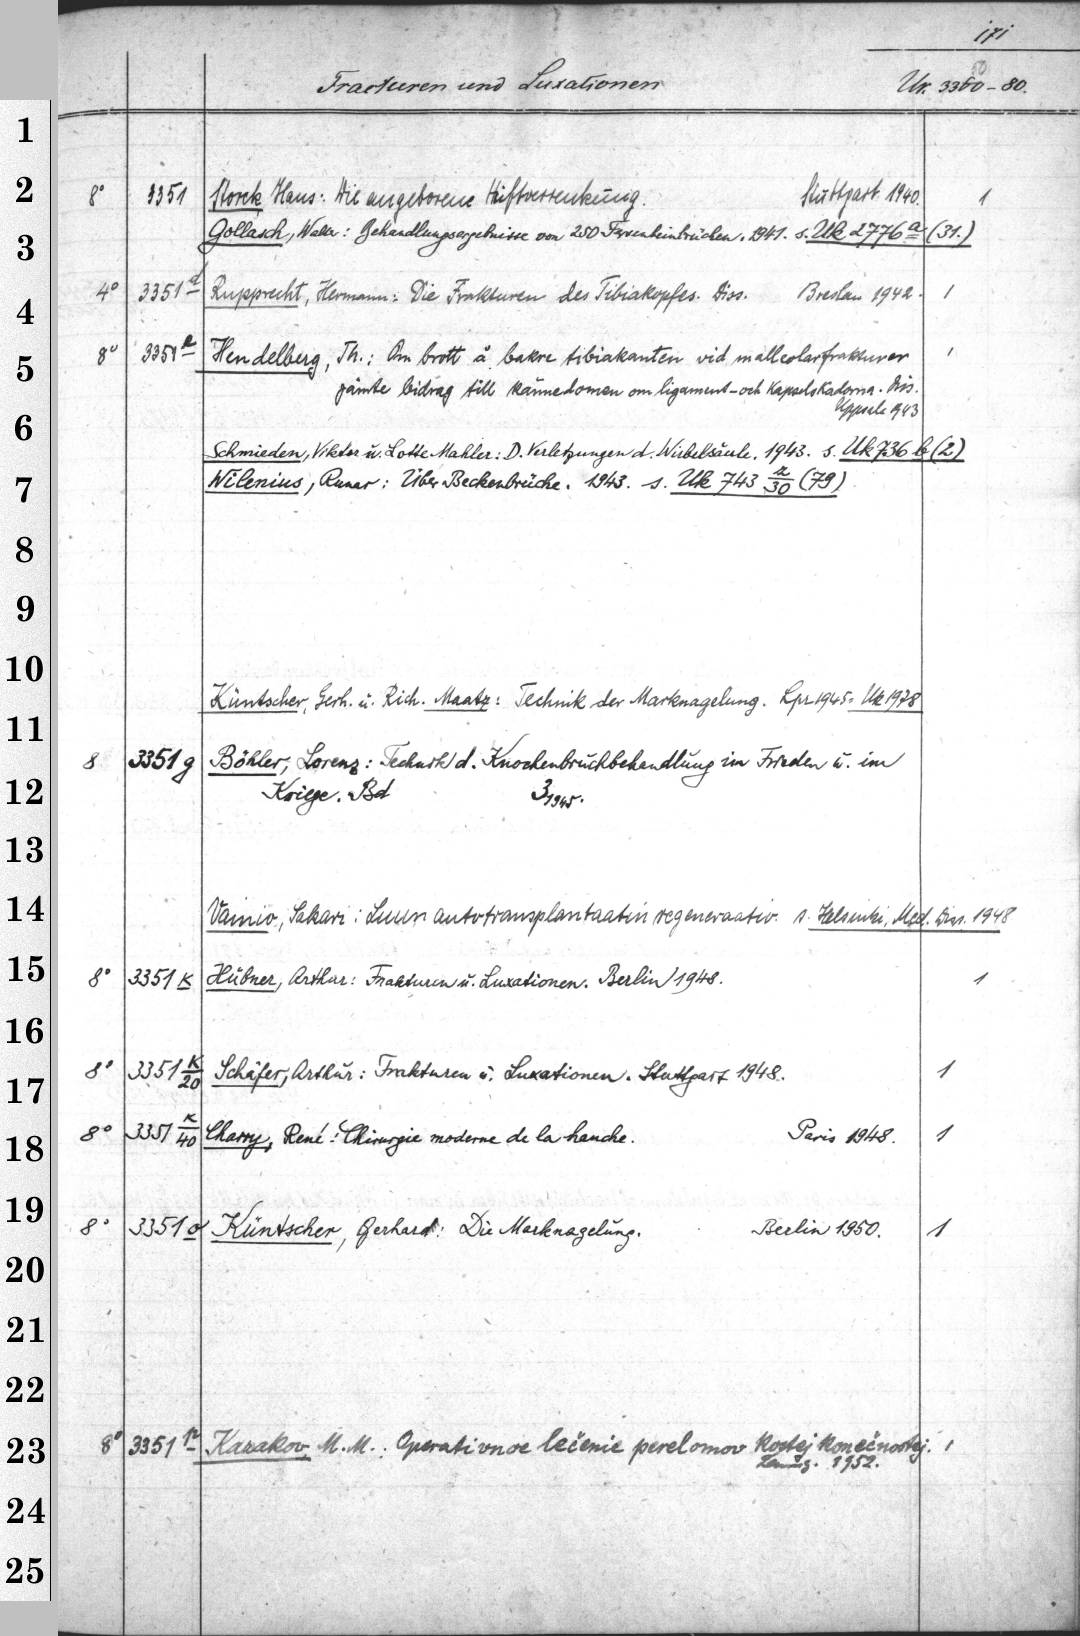 171
Fracturen und Luxationen Uk. 3360-80.
50
1
2 8° 3351 Storck Hans: Die angeborene Hüftverrenkung. Stuttgart 1940. 1
3 Gollasch, Walter: Behandlungsergebnisse von 250 Fersenbeinbrüchen. 1941. s. Uk 2776 a (31.)
4 4° 3351 d Rupprecht, Hermann: Die Frakturen des Tibiakopfes. Diss. Breslau 1942. 1
5 8° 3351 e Hendelberg, Th.: Om brott å bakre tibiakanten vid malleolarfrakturer 1
jämte bidrag till kännedomen om ligament- och Kapselskadorna. Diss.
Uppsala 1943
6 Schmieden, Viktor u. Lotte Mahler: D. Verletzungen d. Wirbelsäule. 1943. s. Uk 736 b (2)
7 Wilenius, Runar: Über Beckenbrüche. 1943. s. Uk 743 r/30 (79)
8
9
10
Küntscher, Gerh. u. Rich. Maatz: Technik der Marknagelung. Lpz 1945 = Uk 1978
11
8 3351 g Böhler, Lorenz: Technik d. Knochenbruchbehandlung im Frieden u. im
12 Kriege. Bd 3 1945.
13
14 Vainio, Sakari: Luun autotransplantaatin regeneraatio. s. Helsinki, Med. Diss. 1948
15 8° 3351 K Hübner, Arthur: Frakturen u. Luxationen. Berlin 1948. 1
16
17 8° 3351 K/20 Schäfer, Arthur: Frakturen u. Luxationen. Stuttgart 1948. 1
18 8° 3351 K/40 Charry, René: Chirurgie moderne de la hanche. Paris 1948. 1
19 8° 3351 o Küntscher, Gerhard: Die Marknagelung. Berlin 1950. 1
20
21
22
23 8° 3351 r Kazakov M. M.: Operativnoe lečenie perelomov kostej konečnostej. 1
1952.
24
25